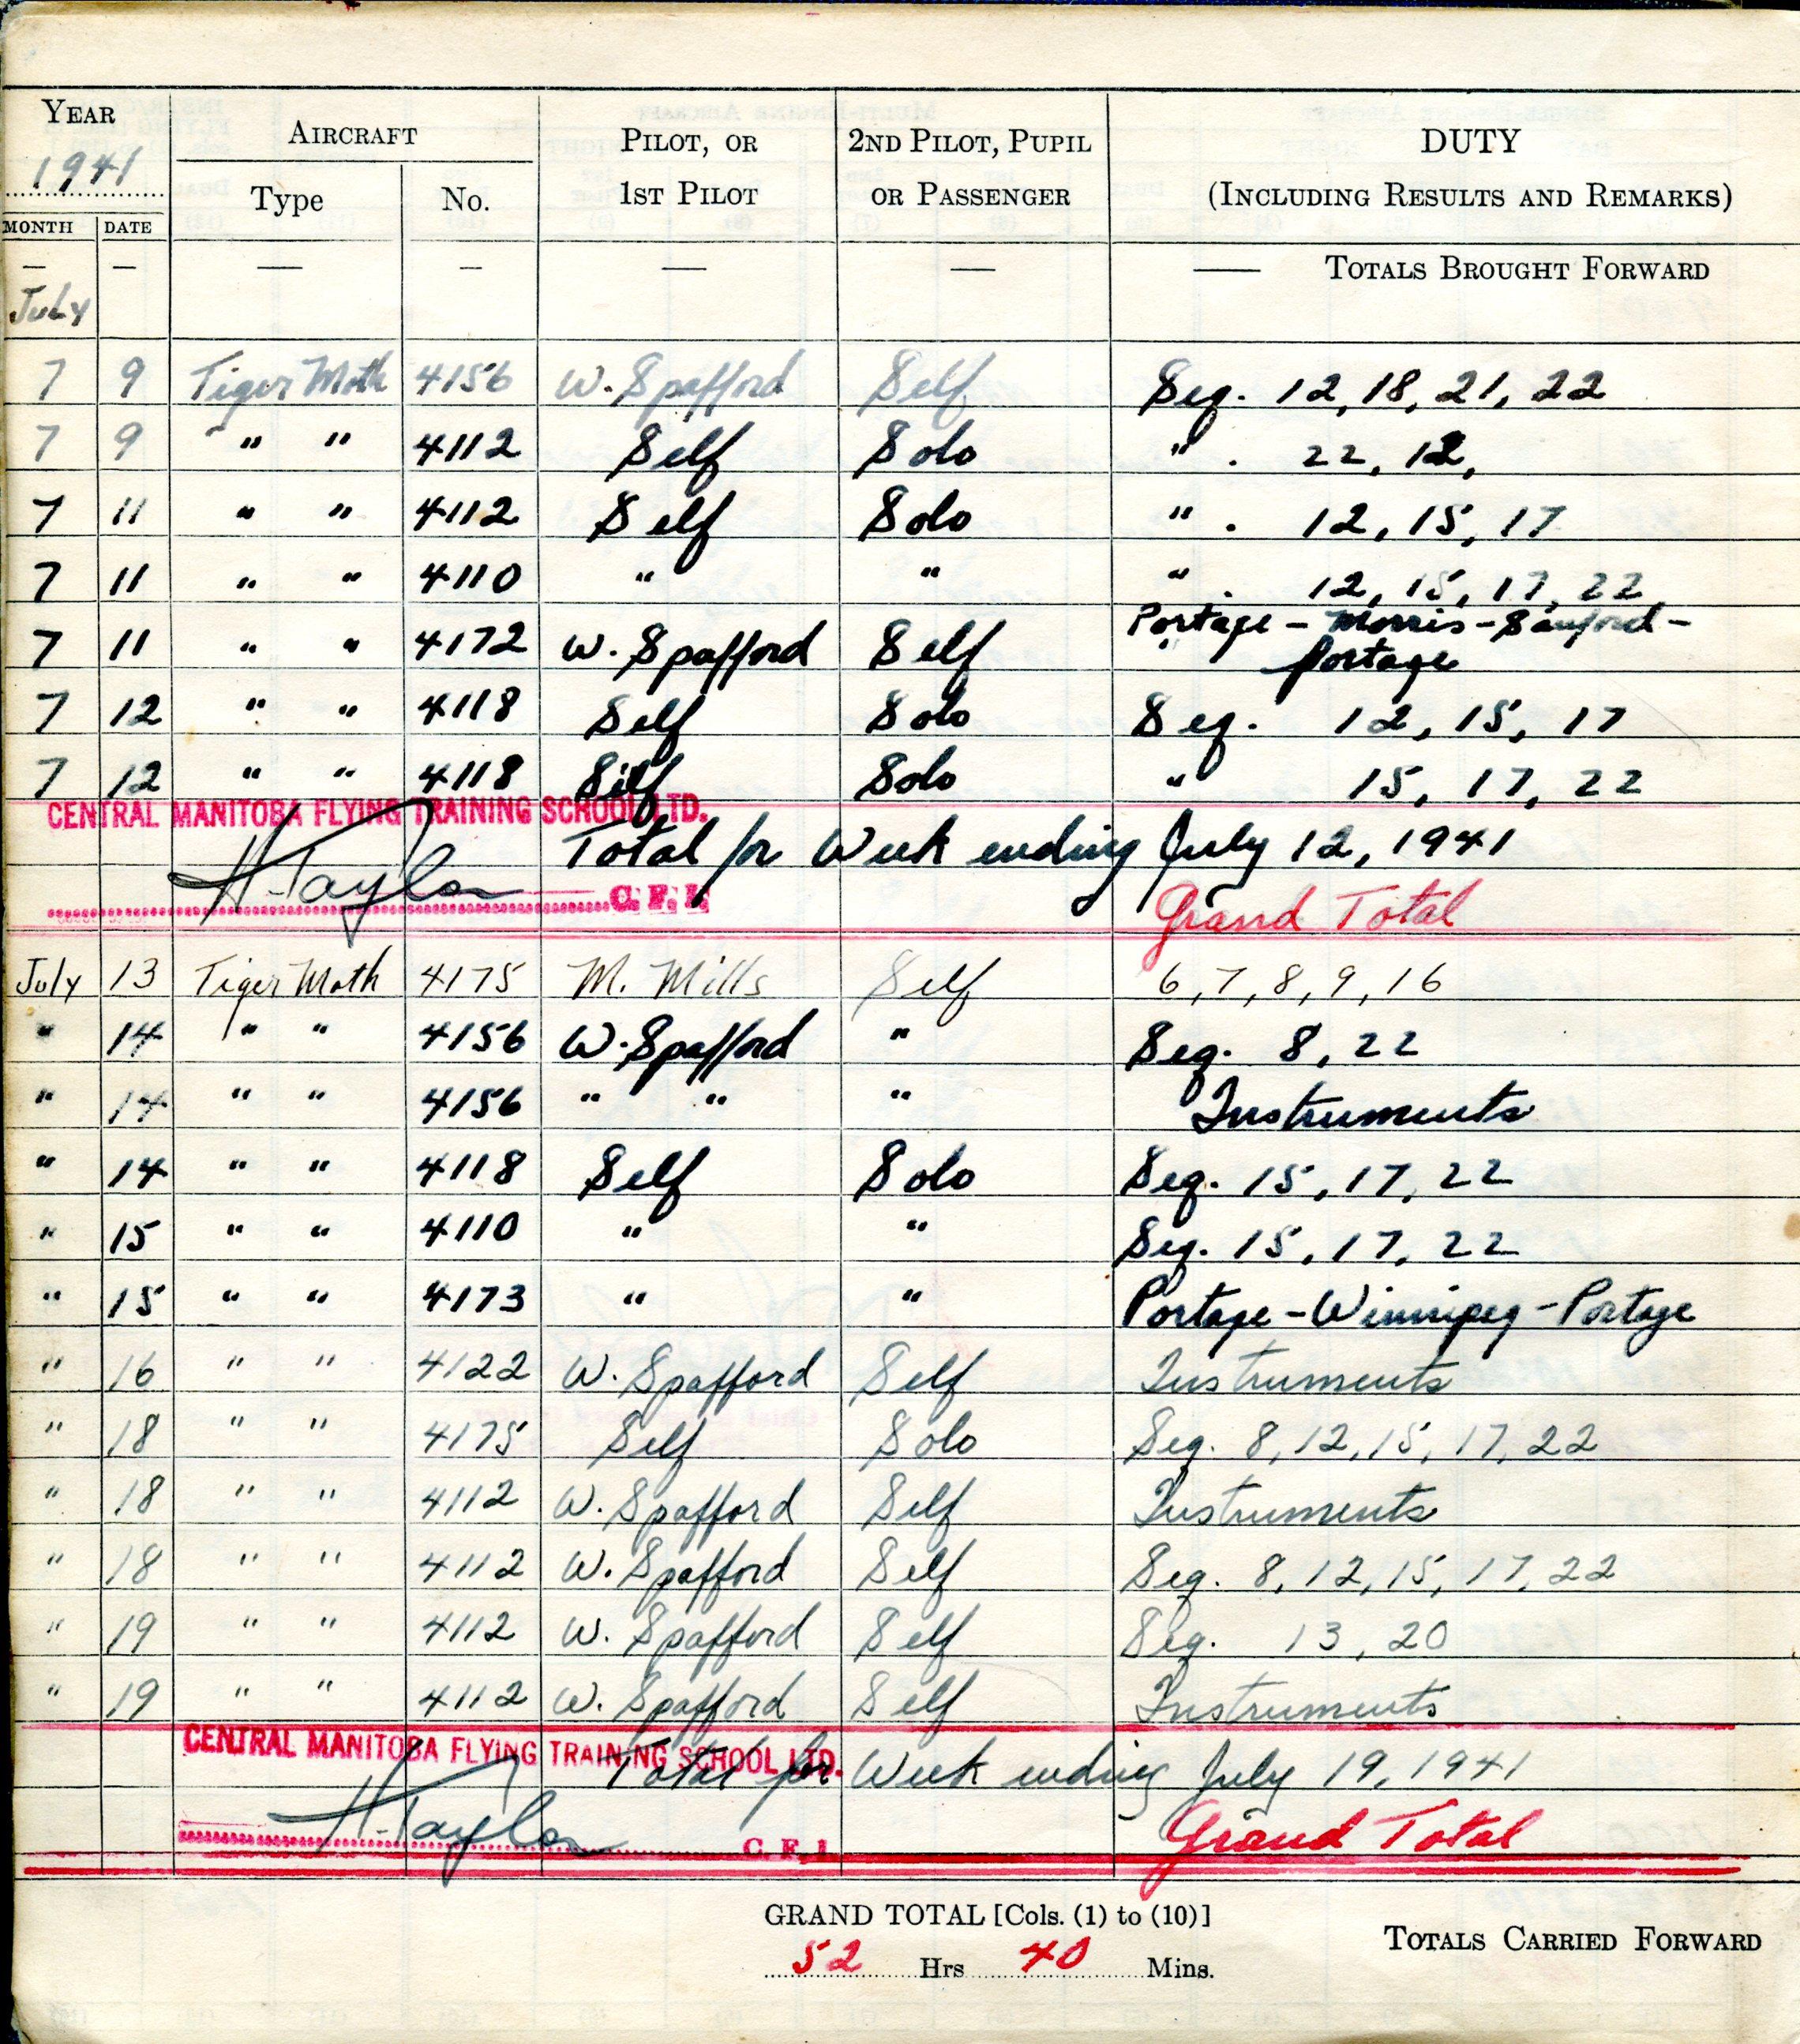 YEAR 1941 AIRCRAFT PILOT, OR 2ND PILOT, PUPIL DUTY
MONTH DATE Type No. 1ST PILOT OR PASSENGER (INCLUDING RESULTS AND REMARKS)
— — — — — — — TOTALS BROUGHT FORWARD
July
7 9 Tiger Moth 4156 W. Spafford Self Seq. 12, 18, 21, 22
7 9 " " 4112 Self Solo " . 22, 12,
7 11 " " 4112 Self Solo " . 12, 15, 17
7 11 " " 4110 " " " . 12, 15, 17, 22
7 11 " " 4172 W. Spafford Self Portage - Morris - Sanford -
Portage
7 12 " " 4118 Self Solo Seq. 12, 15, 17
7 12 " " 4118 Self Solo " 15, 17, 22
CENTRAL MANITOBA FLYING TRAINING SCHOOL LTD.
Total for Week ending July 12, 1941
H. Taylor C. F. I.
Grand Total
July 13 Tiger Moth 4175 M. Mills Self 6, 7, 8, 9, 16
" 14 " " 4156 W. Spafford " Seq. 8, 22
" 14 " " 4156 " " " Instruments
" 14 " " 4118 Self Solo Seq. 15, 17, 22
" 15 " " 4110 " " Seq. 15, 17, 22
" 15 " " 4173 " " Portage - Winnipeg - Portage
" 16 " " 4122 W. Spafford Self Instruments
" 18 " " 4175 Self Solo Seq. 8, 12, 15, 17, 22
" 18 " " 4112 W. Spafford Self Instruments
" 18 " " 4112 W. Spafford Self Seq. 8, 12, 15, 17, 22
" 19 " " 4112 W. Spafford Self Seq. 13, 20
" 19 " " 4112 W. Spafford Self Instruments
CENTRAL MANITOBA FLYING TRAINING SCHOOL LTD.
Total for Week ending July 19, 1941
H. Taylor C. F. I.
Grand Total
GRAND TOTAL [Cols. (1) to (10)]
52 Hrs 40 Mins.
TOTALS CARRIED FORWARD